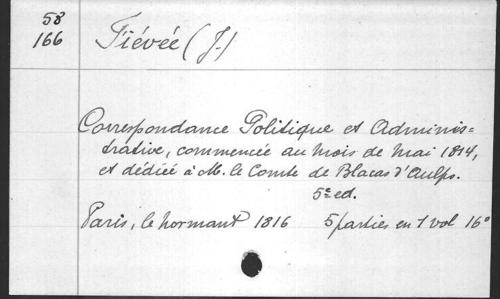 58
166
Fiévée (J.)
Correspondance Politique et Adminis=
trative, commencée au mois de mai 1814,
et dédiée à M. le Comte de Blacas d'Aulps.
5e ed.
Paris, le normant 1816 5 parties en 1 vol 16°